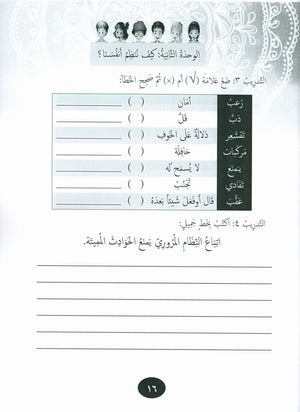 الوحدة الثانية: كيف ننظم أنفسنا؟
التدريب ٣: ضع علامة (√) أم (×) ثم صحح الخطأ:
رعب أمان ( )
دب قل ( )
تقشعر دلالة على الخوف ( )
مركبات حافلة ( )
يمنع لا يسمح له ( )
تفادي تجنب ( )
عقب قال أو فعل شيئا بعده ( )
التدريب ٤: اكتب بخط جميل:
اتباع النظام المروري يمنع الحوادث المميتة.
١٦